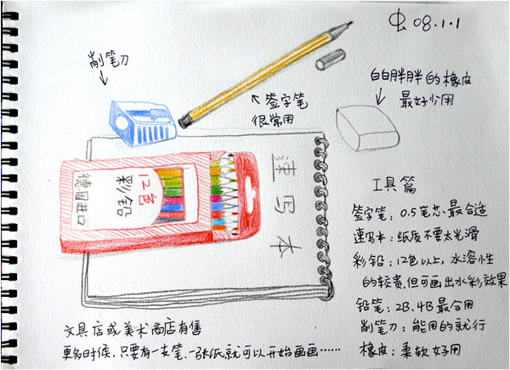 虫 08.1.1
削笔刀
签字笔
很常用
白白胖胖的橡皮
最好少用
速写本
12色
彩铅
德国进口
工具篇
签字笔：0.5笔芯最合适
速写本：纸质不要太光滑
彩铅：12色以上，水溶性
的较贵，但可画出水彩效果
铅笔：2B、4B最合用
削笔刀：能用的就行
橡皮：柔软好用
文具店或美术商店有售
更多时候，只要有一支笔、一张纸就可以开始画画……